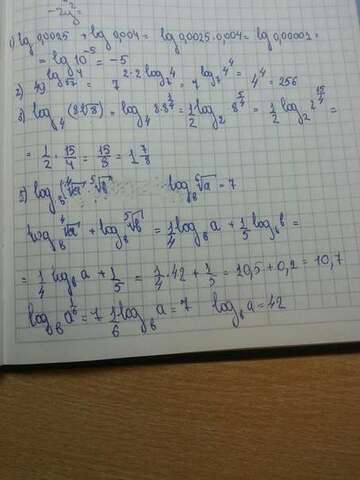 -2y²=
1) lg 0,0025 + lg 0,004 = lg 0,0025·0,004 = lg 0,00001 =
= lg 10⁻⁵ = -5
2) 49^(log_√7 4) = 7^(2·2 log_7 4) = 7^(log_7 4⁴) = 4⁴ = 256
3) log₄ (8 ∜8) = log₄ 8·8^(1/4) = 1/2 log₂ 8^(5/4) = 1/2 log₂ 2^(15/4) =
= 1/2 · 15/4 = 15/8 = 1 7/8
5) log_в (∜a · ⁵√в) log_в ⁶√a = 7
log_в ∜a + log_в ⁵√в = 1/4 log_в a + 1/5 log_в в =
= 1/4 log_в a + 1/5 = 1/4 · 42 + 1/5 = 10,5 + 0,2 = 10,7
log_в a^(1/6) = 7 1/6 log_в a = 7 log_в a = 42